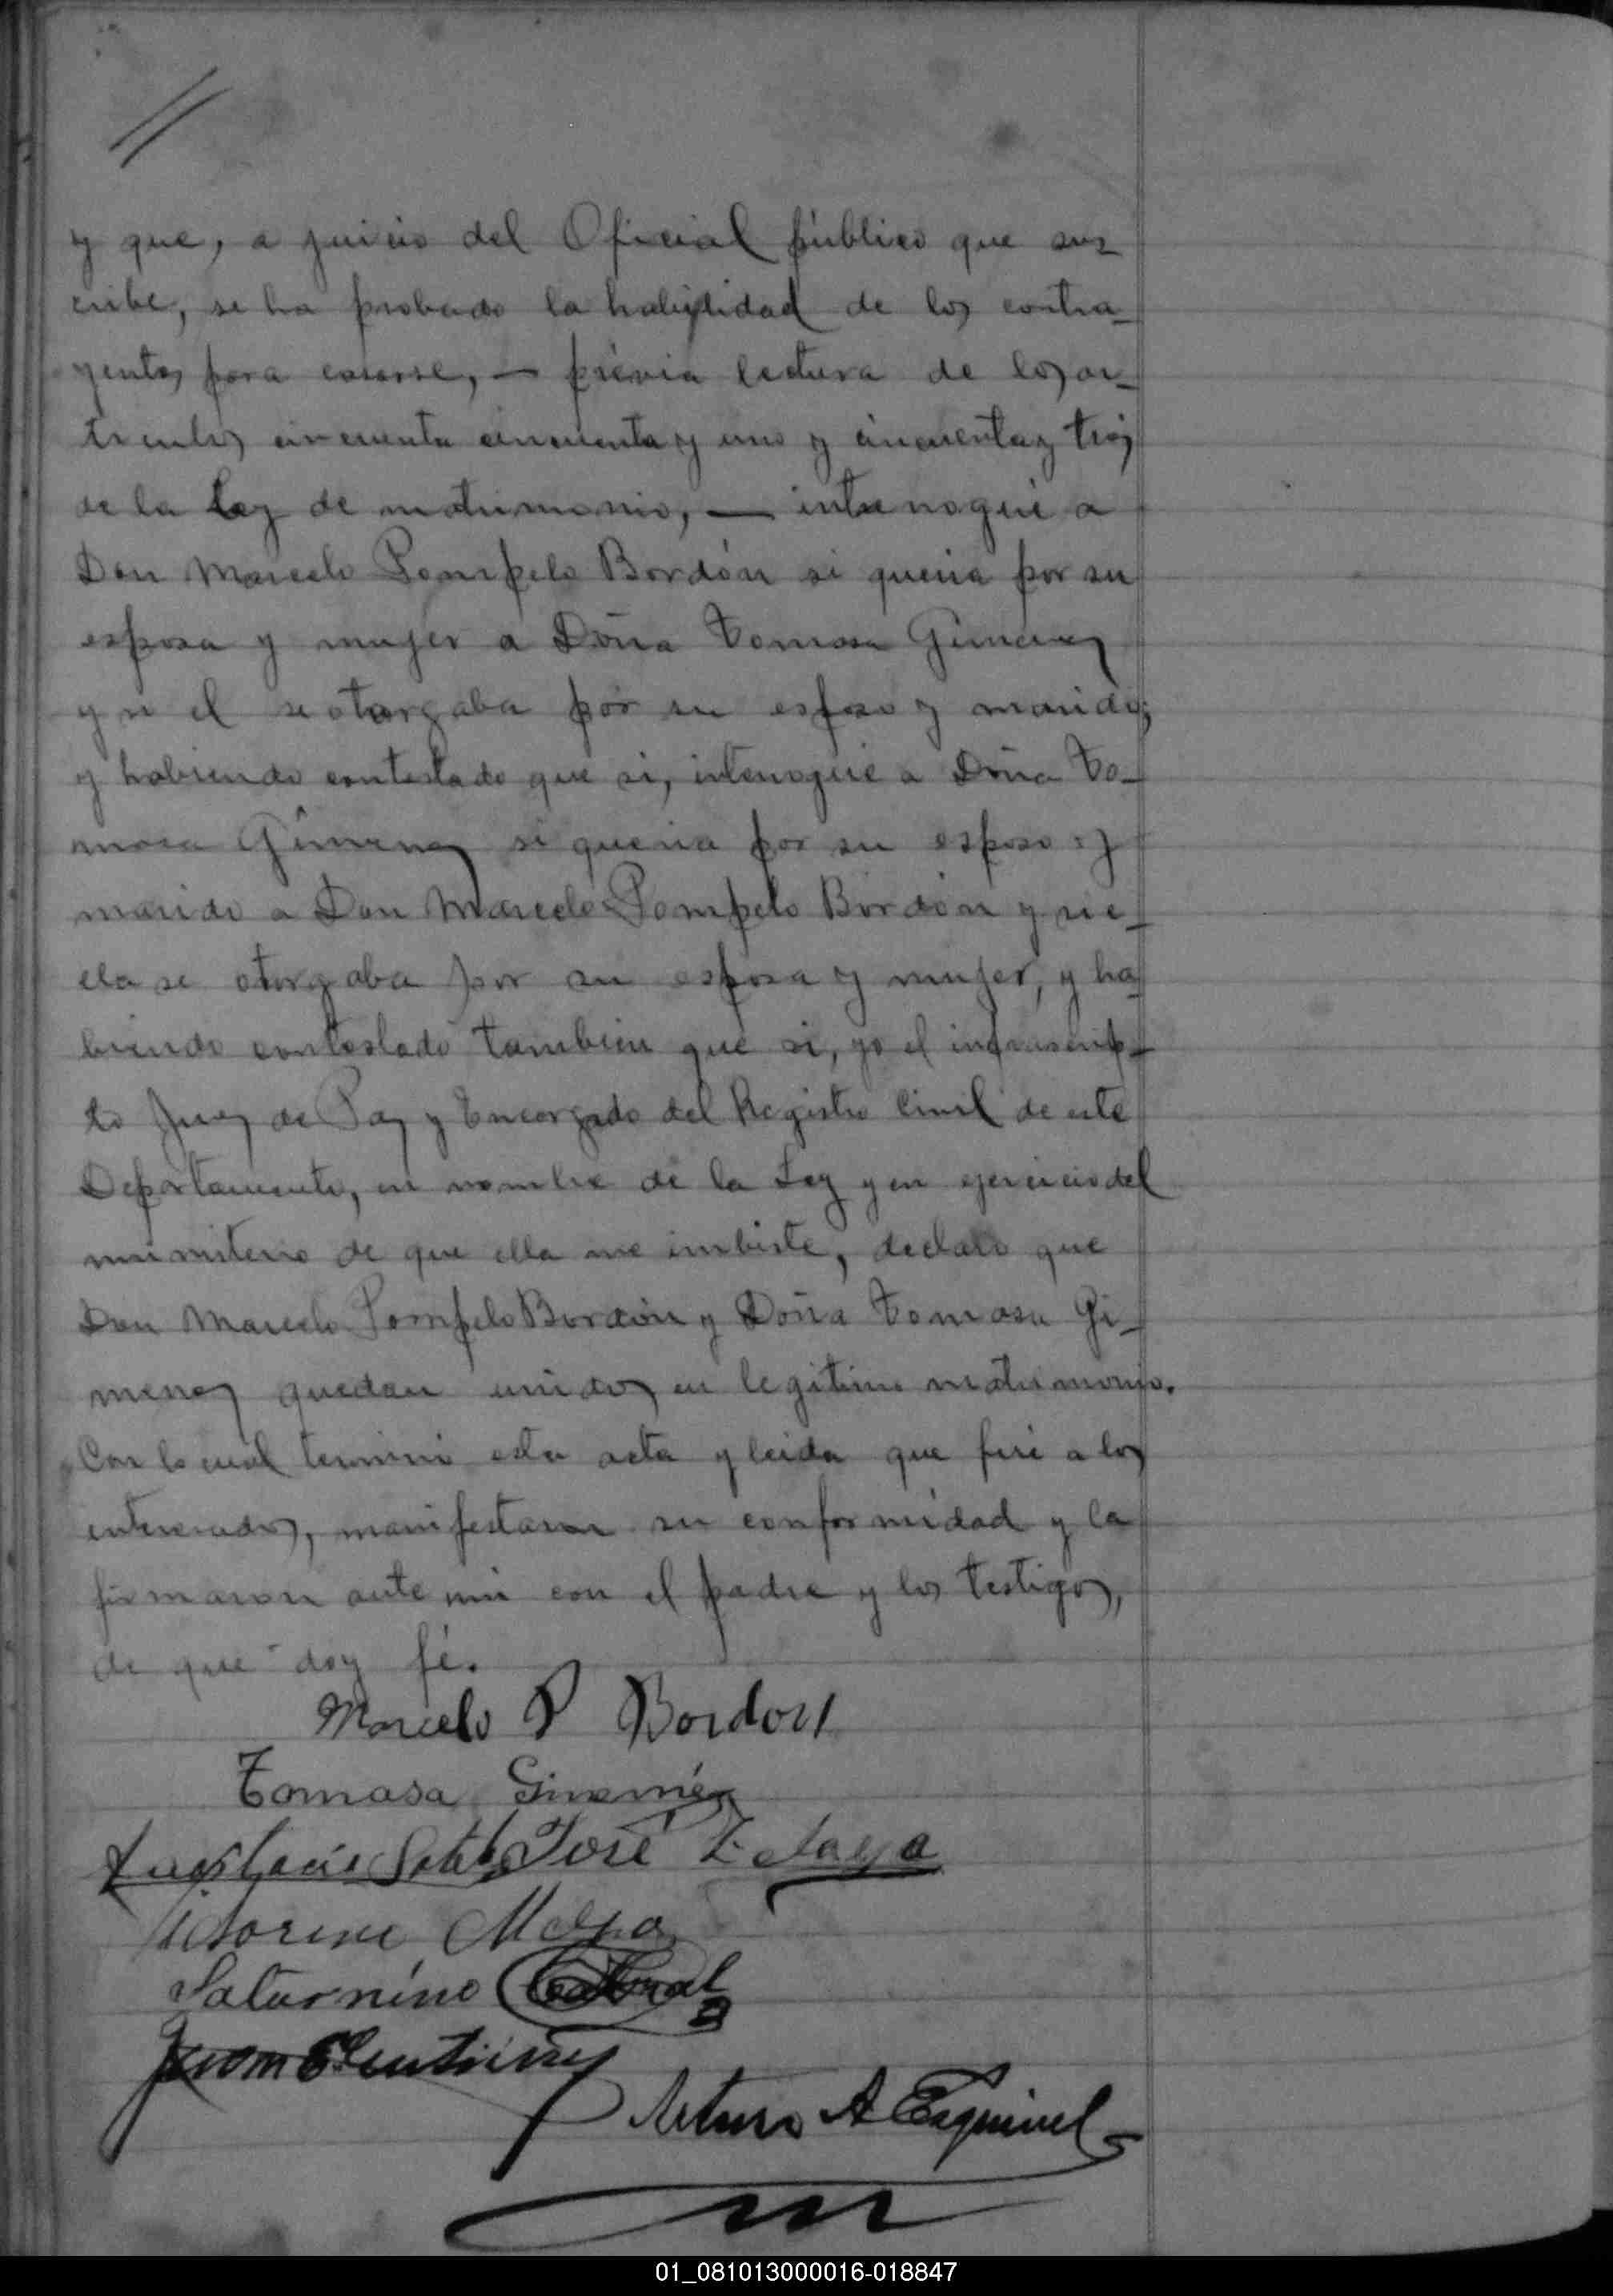 y que, a juicio del Oficial público que sus-
cribe, se ha probado la habilidad de los contra-
yentes para casarse, — prévia lectura de los ar-
tículos cincuenta cincuenta y uno y cincuenta y tres
de la Ley de matrimonio, — interrogué a
Don Marcelo Pompelo Bordón si queria por su
esposa y mujer a Doña Tomasa Gimenez
y si el se otorgaba por su esposo y marido;
y habiendo contestado que si, interrogué a Doña To-
masa Gimenez si queria por su esposo y
marido a Don Marcelo Pompelo Bordón y si e-
lla se otorgaba por su esposa y mujer, y ha-
biendo contestado tambien que si, yo el infrascrip-
to Juez de Paz y Encargado del Registro Civil de este
Departamento, en nombre de la Ley y en ejercicio del
ministerio de que ella me imbiste, declaro que
Don Marcelo Pompelo Bordón y Doña Tomasa Gi-
menez quedan unidos en legitimo matrimonio.
Con lo cual terminó esta acta y leida que fué a los
interesados, manifestaron su conformidad y la
firmaron ante mi con el padre y los testigos,
de que doy fé.
Marcelo P Bordon
Tomasa Gimenéz
José Zelaya
Saturnino Cabral
Juan
Arturo A Esquivel
01_081013000016-018847